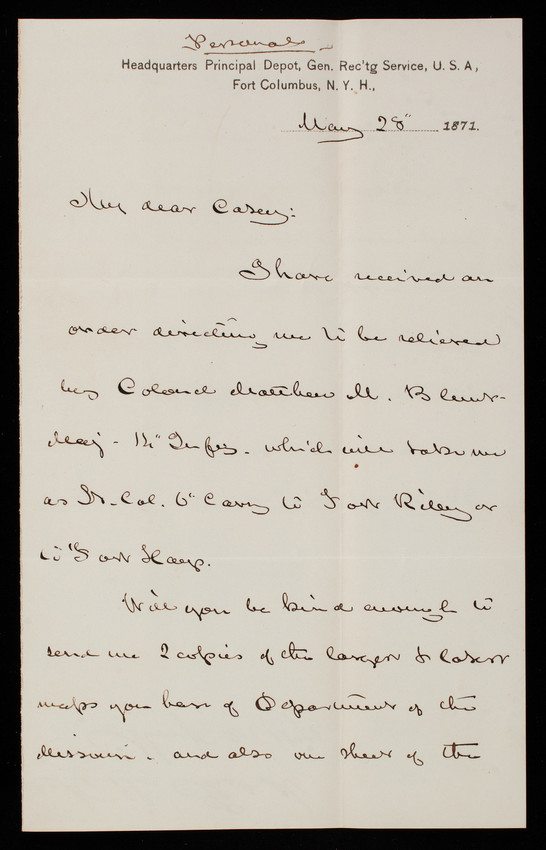 Personal
Headquarters Principal Depot, Gen. Rec'tg Service, U. S. A,
Fort Columbus, N. Y. H.,
May 28" 1871.
My dear Casey:
I have received an
order directing me to be relieved
by Colonel Matthew M. Blunt
Maj - 14" Infy. which will take me
as Lt. Col. 6" Cavy to Fort Riley or
to Fort Hays.
Will you be kind enough to
send me 2 copies of the largest & latest
maps you have of Department of the
Missouri. and also one sheet of the